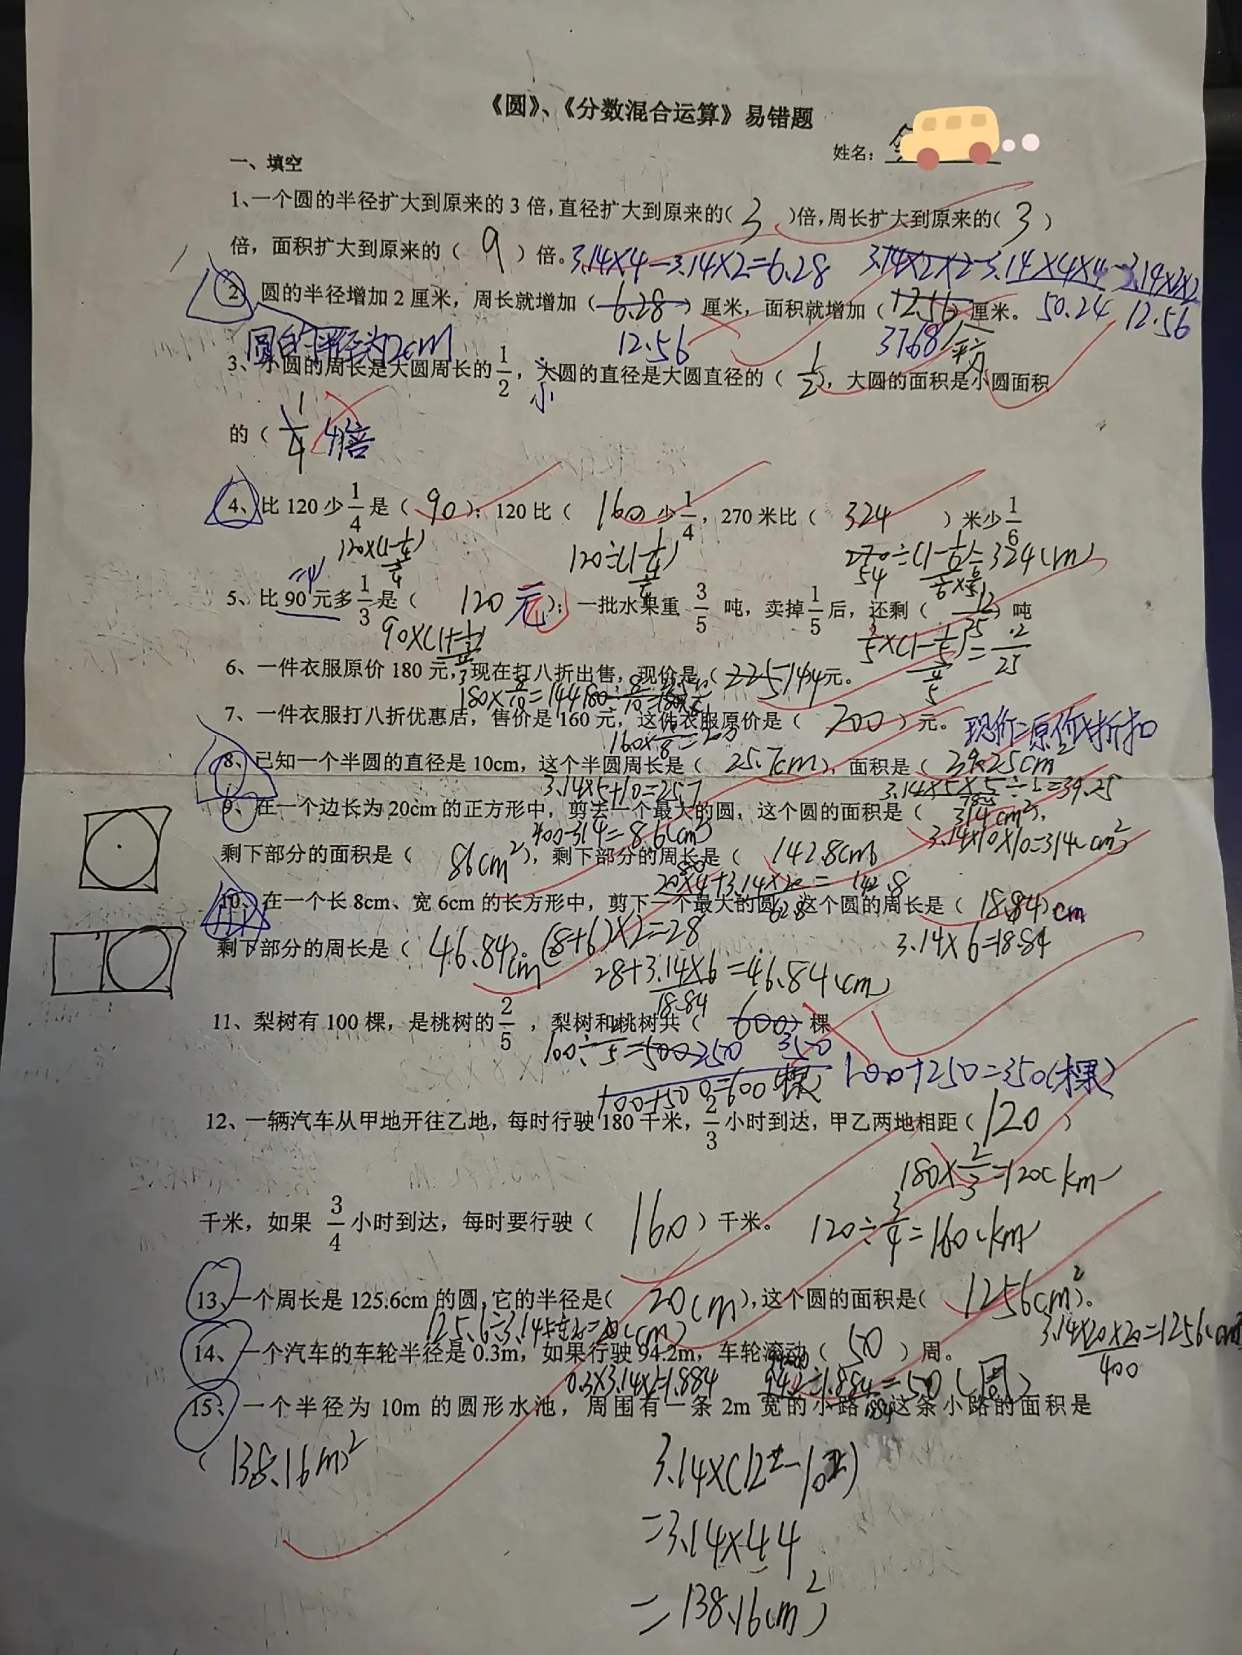 《圆》、《分数混合运算》易错题
姓名：
一、填空
1、一个圆的半径扩大到原来的 3 倍，直径扩大到原来的（ 3 ）倍，周长扩大到原来的（ 3 ）
倍，面积扩大到原来的（ 9 ）倍。3.14×4-3.14×2=6.28 3.14×2×2 3.14×4×4-3.14×2×2
2、圆的半径增加 2 厘米，周长就增加（ 6.28 ）厘米，面积就增加（ 12.56 ）厘米。 50.24 12.56
圆的半径为2cm 12.56 37.68 平方
3、小圆的周长是大圆周长的 1/2，大圆的直径是大圆直径的（ 1/2 ），大圆的面积是小圆面积
小
的（ 1/4 4倍
4、比 120 少 1/4 是（ 90 ）；120 比（ 160 ）少 1/4，270 米比（ 324 ）米少 1/6
120×(1-1/4) 120÷(1-1/4) 270÷(1-1/6)=324(m)
5、比 90 元多 1/3 是（ 120 元 ）；一批水果重 3/5 吨，卖掉 1/5 后，还剩（ 12/25 ）吨
90×(1+1/3) 3/5×(1-1/5)=12/25
6、一件衣服原价 180 元，现在打八折出售，现价是（ 225 144 ）元。
180×8/10=144
7、一件衣服打八折优惠后，售价是 160 元，这件衣服原价是（ 200 ）元。 现价=原价×折扣
8、已知一个半圆的直径是 10cm，这个半圆周长是（ 25.7cm ），面积是（ 39.25cm²
3.14×5+10=25.7 3.14×5×5÷2=39.25
9、在一个边长为 20cm 的正方形中，剪去一个最大的圆，这个圆的面积是（ 314cm² ），
400-314=86(cm²) 3.14×10×10=314(cm²)
剩下部分的面积是（ 86cm² ），剩下部分的周长是（ 142.8cm
20×4+3.14×20=142.8
10、在一个长 8cm、宽 6cm 的长方形中，剪下一个最大的圆，这个圆的周长是（ 18.84 ）cm
3.14×6=18.84
剩下部分的周长是（ 46.84cm ）。(8+6)×2=28
28+3.14×6=46.84(cm)
18.84
11、梨树有 100 棵，是桃树的 2/5 ，梨树和桃树共（ 600 ）棵
100÷2/5=500 250 350
100+500=600(棵) 100+250=350(棵)
12、一辆汽车从甲地开往乙地，每时行驶 180 千米，2/3 小时到达，甲乙两地相距（ 120 ）
180×2/3=120(km
千米，如果 3/4 小时到达，每时要行驶（ 160 ）千米。 120÷3/4=160(km
13、一个周长是 125.6cm 的圆，它的半径是（ 20(cm) ），这个圆的面积是（ 1256cm² ）。
125.6÷3.14÷2=20(cm) 3.14×20×20=1256(cm²
400
14、一个汽车的车轮半径是 0.3m，如果行驶 94.2m，车轮滚动（ 50 ）周。
0.3×3.14×2=1.884 94.2÷1.884=50(周)
15、一个半径为 10m 的圆形水池，周围有一条 2m 宽的小路，这条小路的面积是
（ 138.16m² 3.14×(12²-10²)
=3.14×44
=138.16(m²)